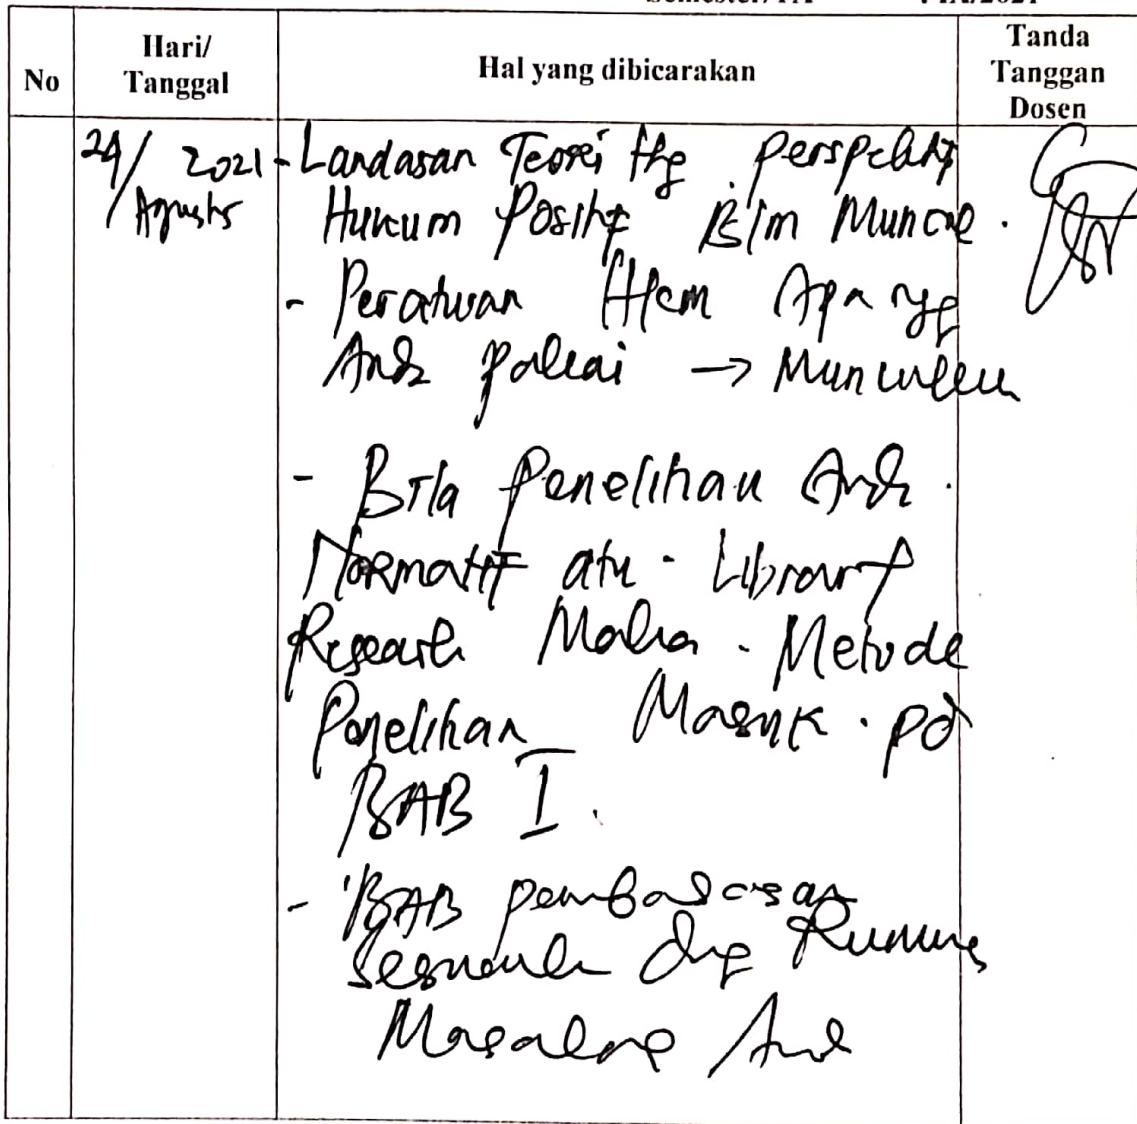 No
Hari/
Tanggal
Hal yang dibicarakan
Tanda
Tanggan
Dosen
24/ 2021
Agustus
- Landasan Teori ttg. perspektif
Hukum Positif Blm Muncul.
- Peraturan Hkm Apa yg
Anda pakai → Munculkan
- Bila Penelitian Anda
Normatif atu Library
Research Maka Metode
Penelitian Masuk pd
BAB I.
- BAB pembahasan
sesuaikan dng Rumusan
Masalah Anda